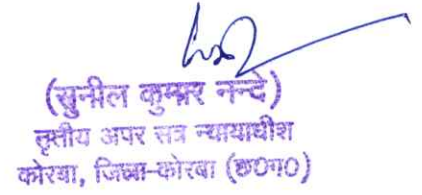 (सुनील कुमार नन्दे)
तृतीय अपर सत्र न्यायाधीश
कोरबा, जिला-कोरबा (छ0ग0)